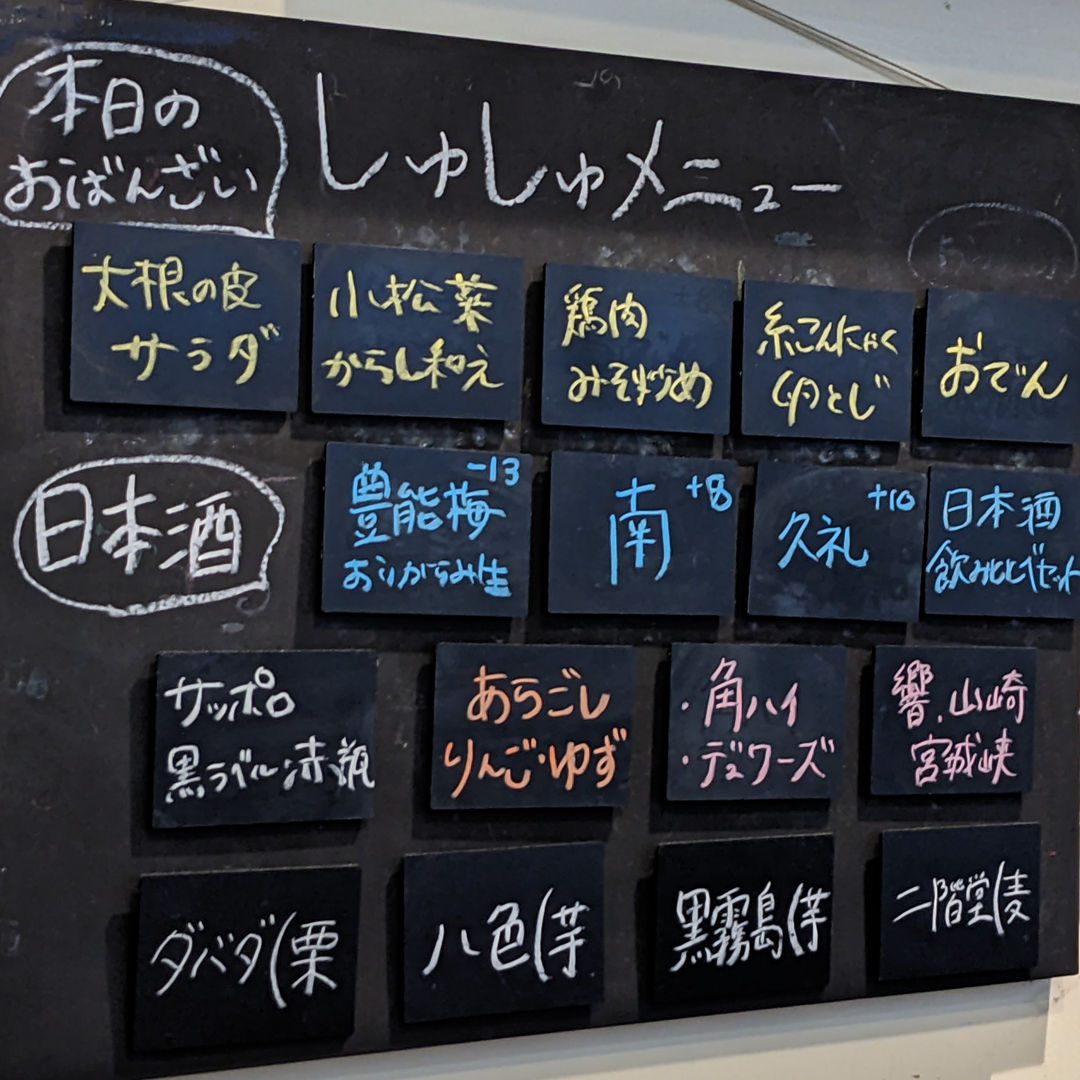 本日の
おばんざい
しゅしゅメニュー
大根の皮
サラダ
小松菜
からし和え
鶏肉
みそ炒め
糸こんにゃく
卵とじ
おでん
日本酒
-13
豊能梅
おりがらみ生
+8
南
+10
久礼
日本酒
飲み比べセット
サッポロ
黒ラベル・赤瓶
あらごし
りんご・ゆず
・角ハイ
・デュワーズ
響.山崎
宮城峡
ダバダ(栗
八色(芋
黒霧島(芋
二階堂(麦